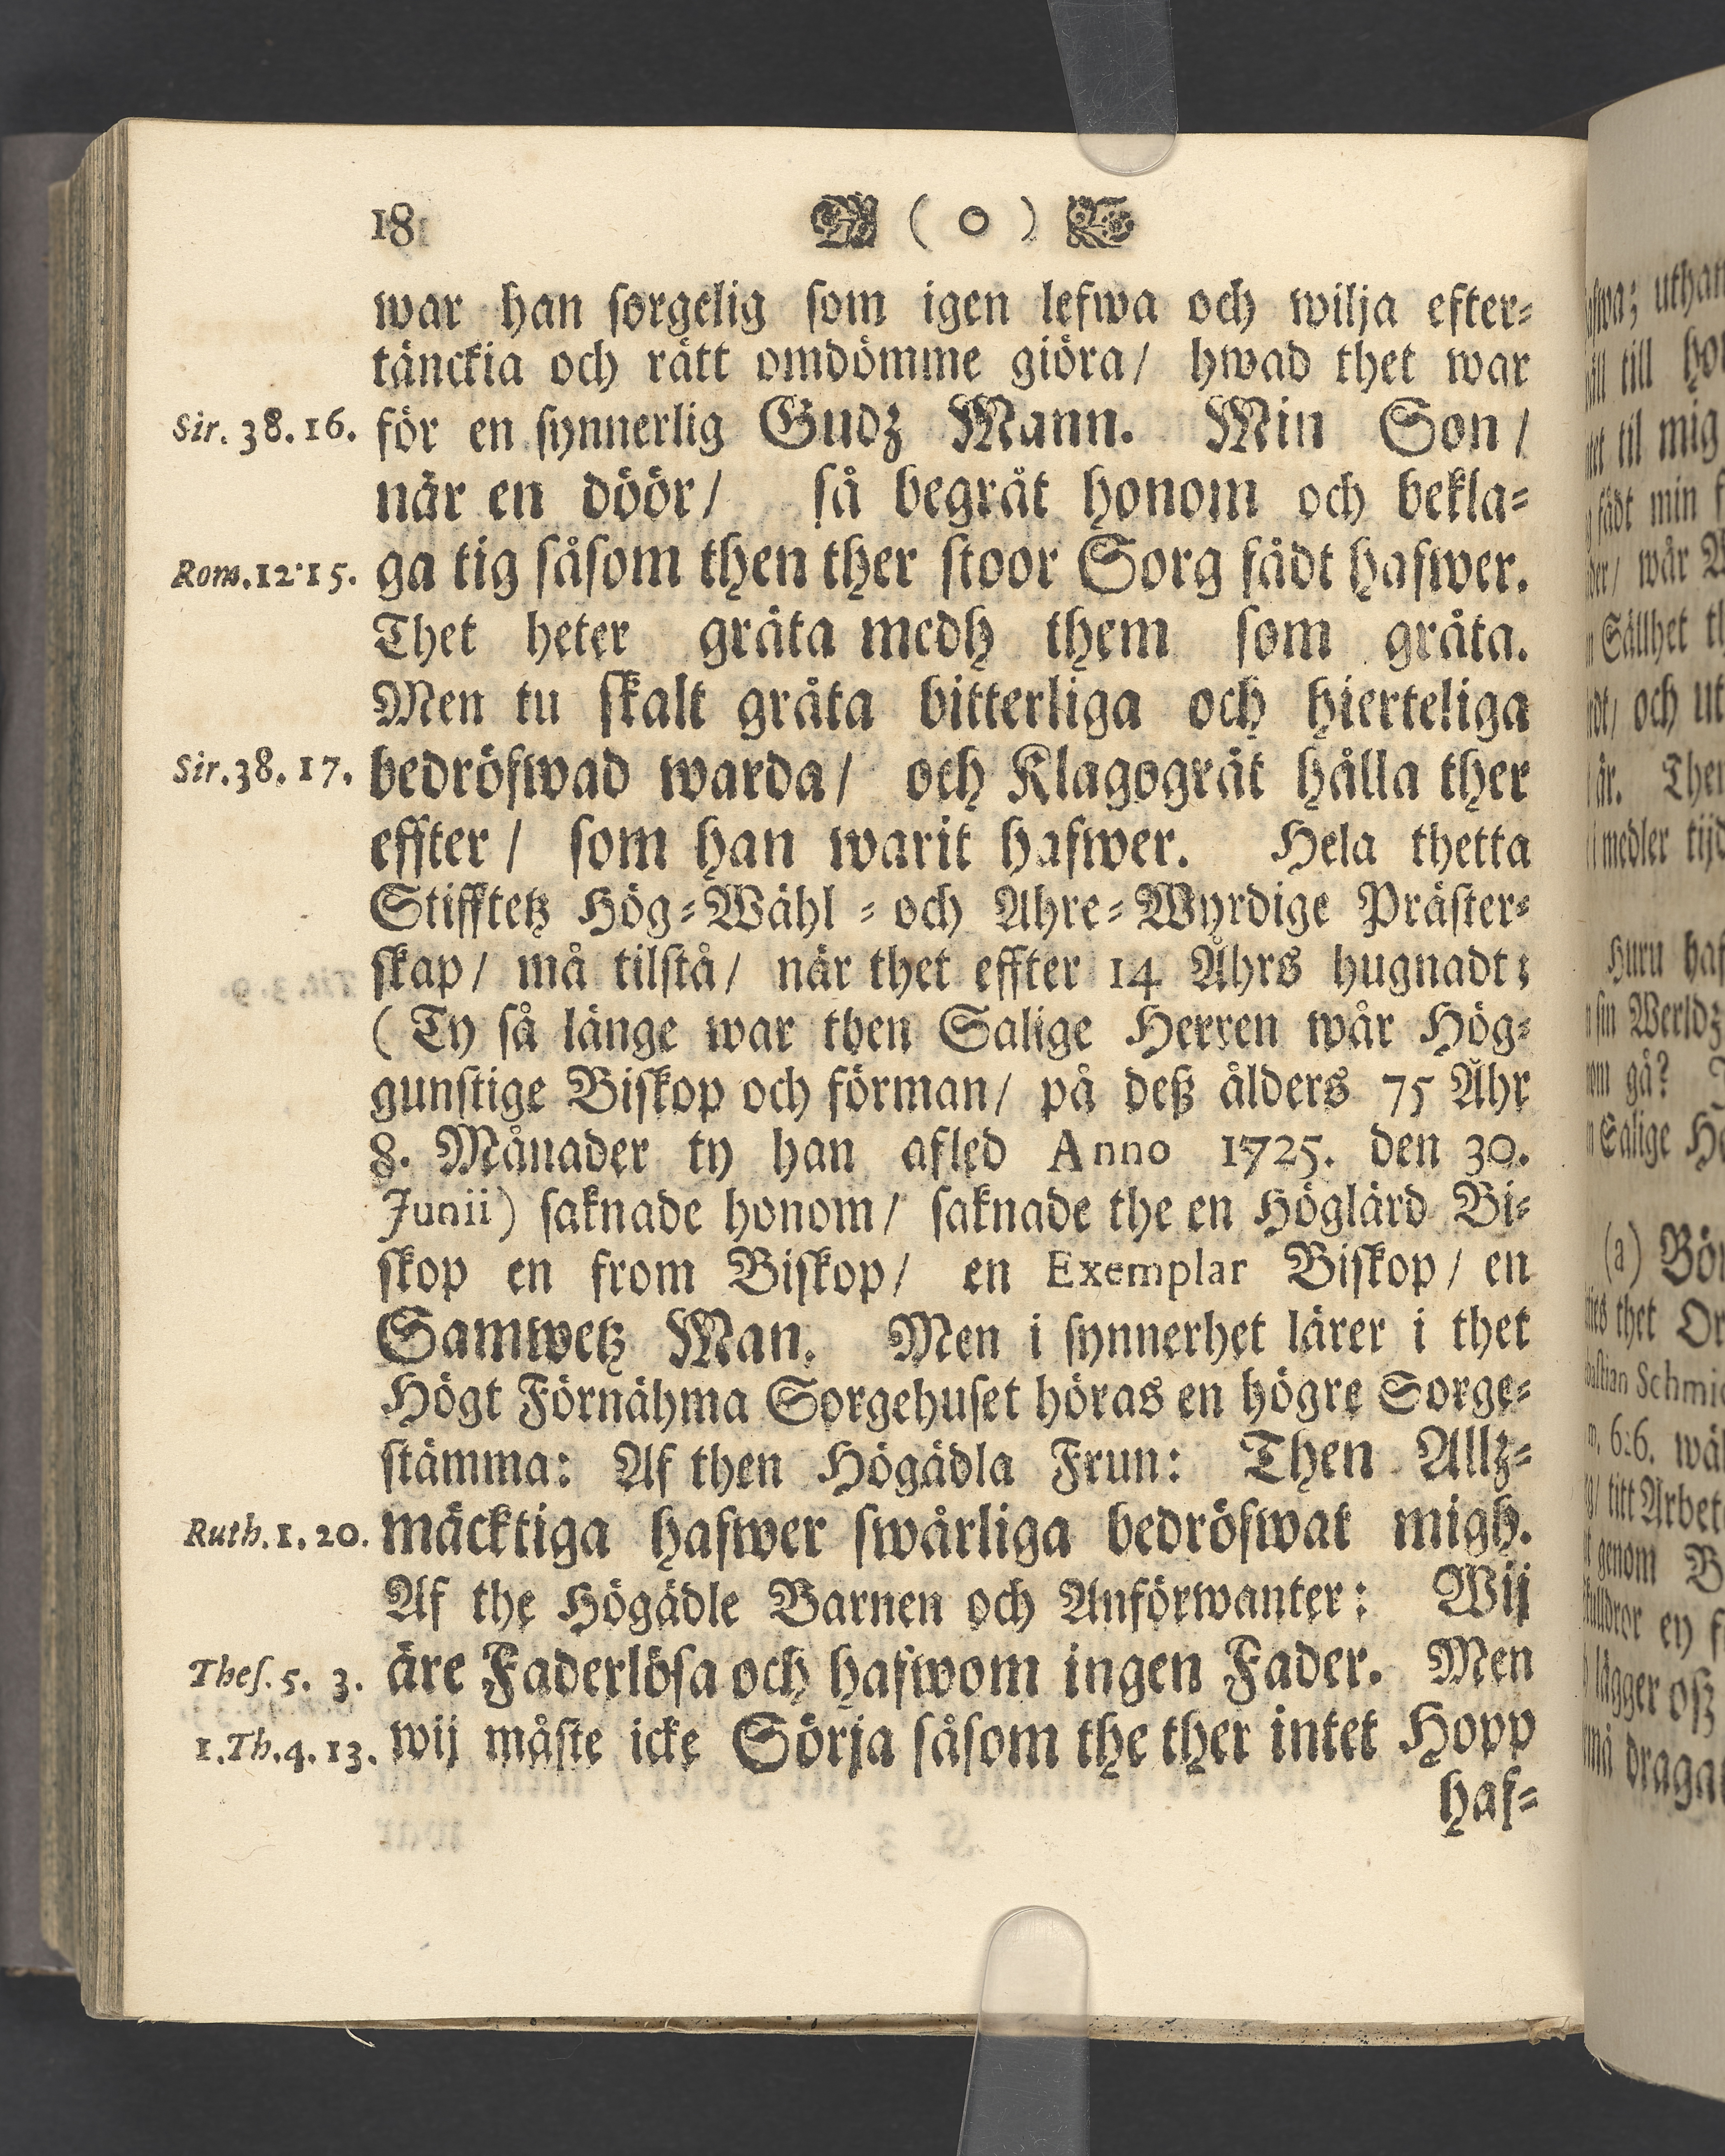 18 ( o )
war han sorgelig som igen lefwa och wilja efter-
tänckia och rätt omdömme giöra/ hwad thet war
Sir. 38. 16. för en synnerlig Gudz Mann. Min Son/
när en döör/ så begråt honom och bekla-
Rom. 12. 15. ga tig såsom then ther stoor Sorg fådt hafwer.
Thet heter gråta medh them som gråta.
Men tu skalt gråta bitterliga och hierteliga
Sir. 38. 17. bedröfwad warda/ och Klagogråt hålla ther
effter/ som han warit hafwer. Hela thetta
Stifftetz Hög-Wähl- och Ahre-Wyrdige Präster-
skap/ må tilstå/ när thet effter 14 Åhrs hugnadt;
(Ty så länge war then Salige Herren wår Hög-
gunstige Biskop och förman/ på deß ålders 75 Åhr
8. Månader ty han afled Anno 1725. den 30.
Junii) saknade honom/ saknade the en Höglärd Bi-
skop en from Biskop/ en Exemplar Biskop/ en
Samwetz Man. Men i synnerhet lärer i thet
Högt Förnähma Sorgehuset höras en högre Sorge-
stämma: Af then Högädla Frun: Then Allz-
Ruth. 1. 20. mäcktiga hafwer swårliga bedröfwat migh.
Af the Högädle Barnen och Anförwanter: Wij
Thes. 5. 3. äre Faderlösa och hafwom ingen Fader. Men
1. Th. 4. 13. wij måste icke Sörja såsom the ther intet Hopp
haf-